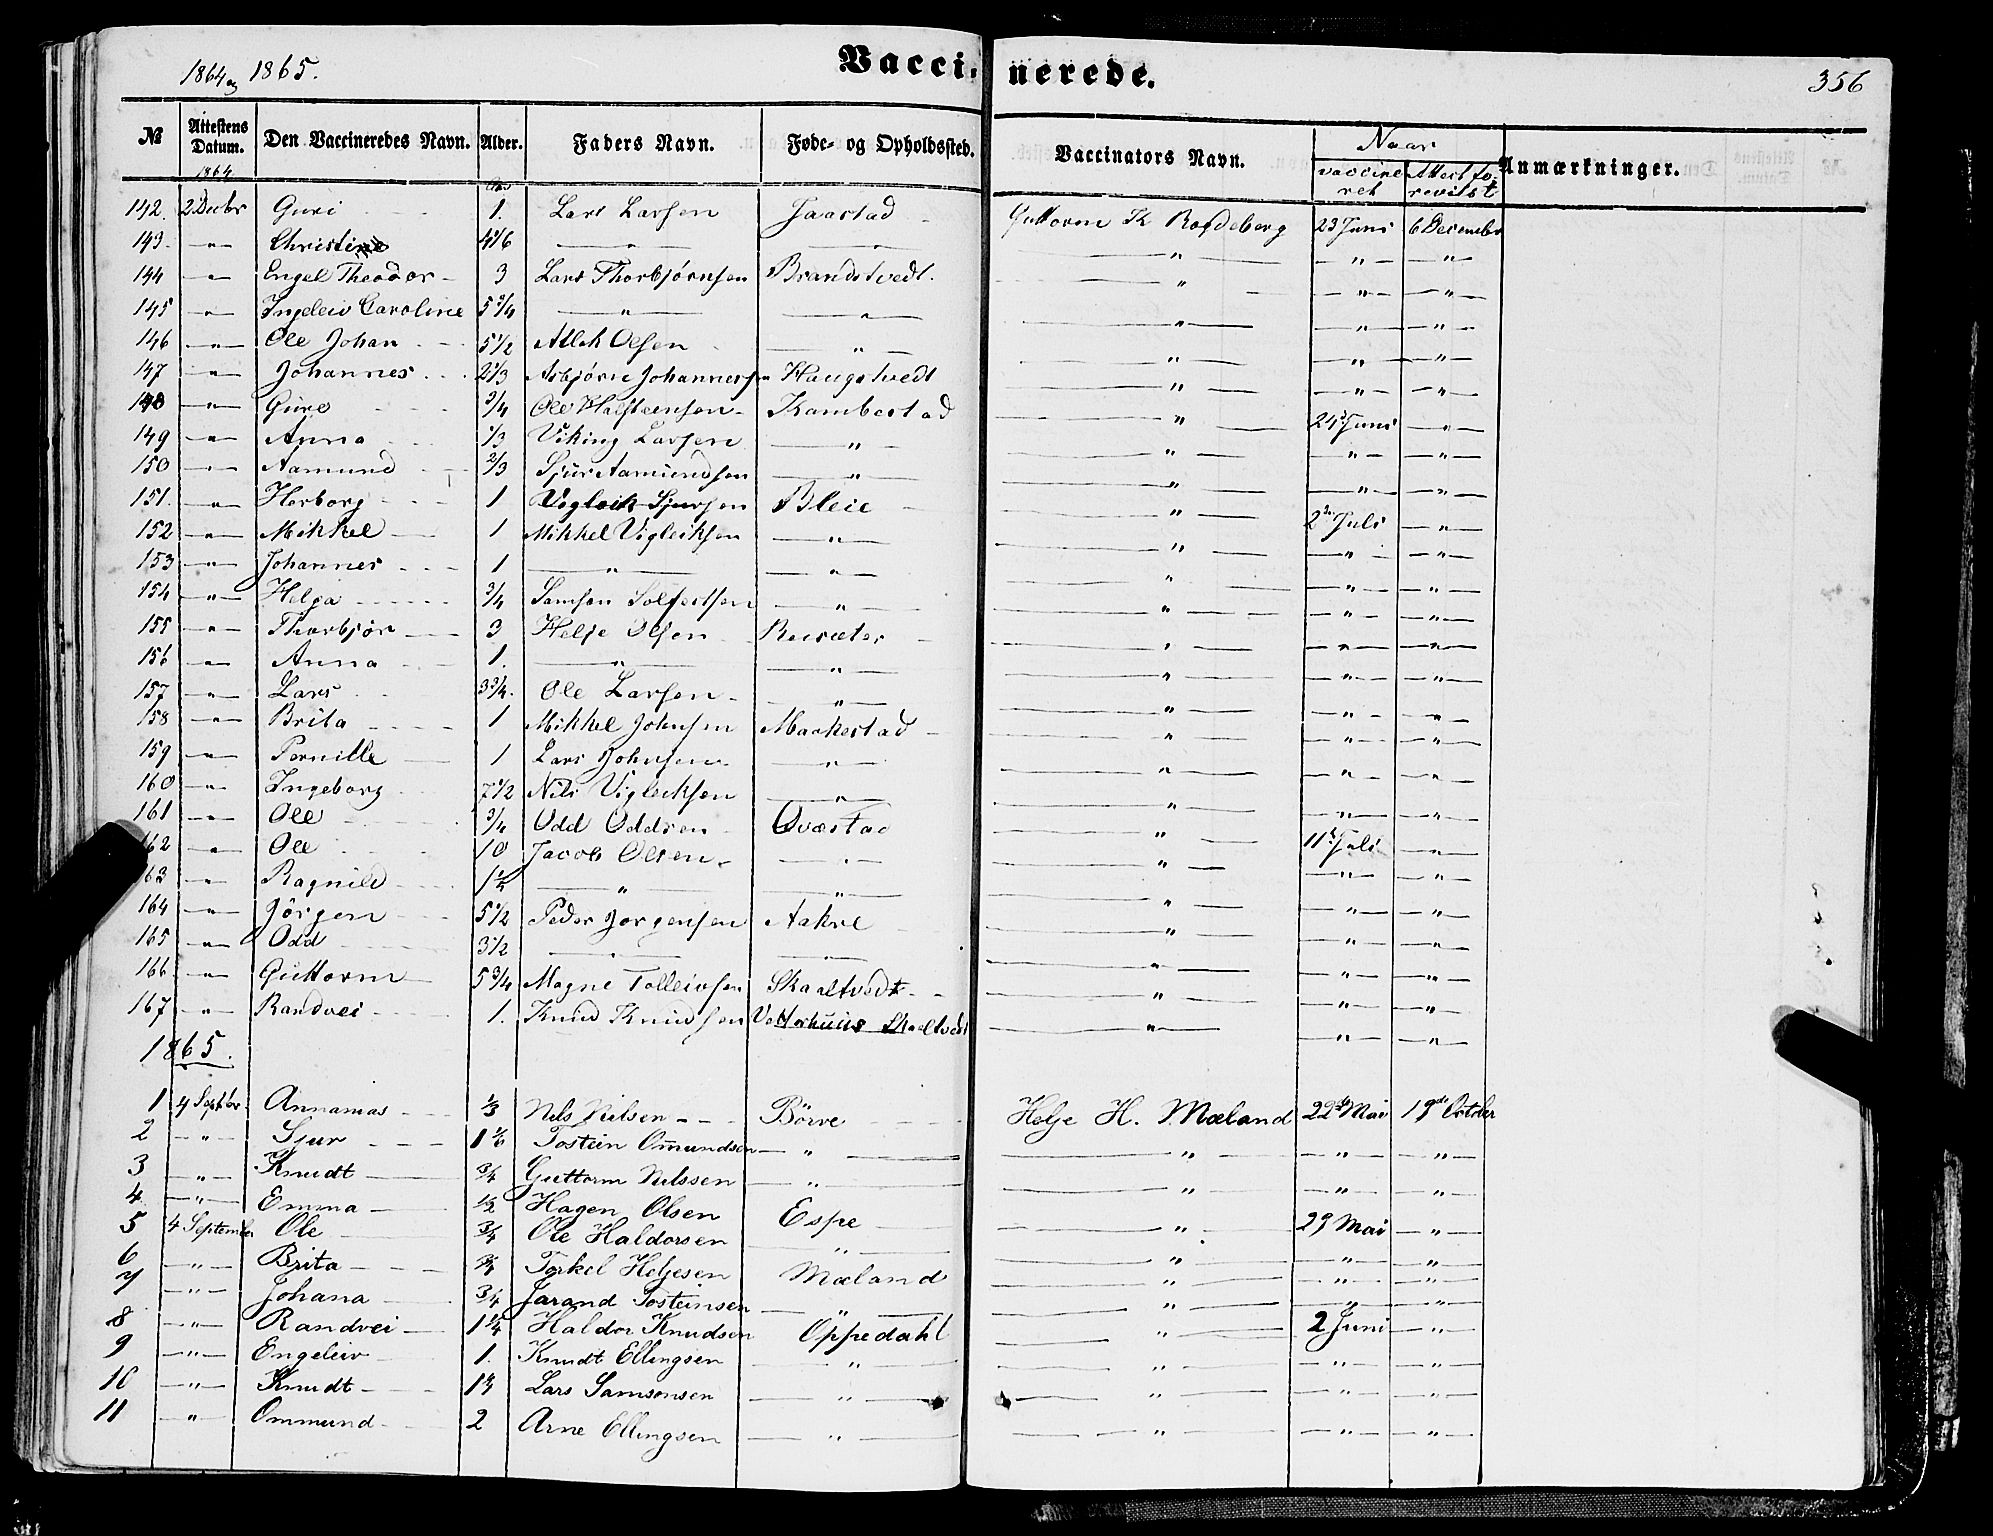 1864 og 1865. Vaccinerede. 356
№ Attestens Datum. Den Vaccineredes Navn. Alder. Faders Navn. Føde- og Opholdssted. Vaccinators Navn. Naar vaccineret Attest forevist Anmærkninger.
1864
142. 2 Decbr Guri 1. Lars Larsen Jaastad Guttorm K Rogdeberg 23 Juni 6 December
143. " Christine 4 1/6 " " " " "
144 " Engel Theodor 3 Lars Thorbjørnsen Brandstvedt. " " "
145 " Ingeleiv Caroline 5 3/4 " " " " "
146 " Ole Johan 5 1/2 Atlak Olsen " " " "
147 " Johannes 2 1/3 Asbjørn Johannessen Haugstvedt " " "
148 " Guro 3/4 Ole Halsteensen Kambestad " 24 Juni "
149 " Anna 1/3 Viking Larsen " " " "
150 " Aamund 2/3 Sjur Aamundsen " " " "
151. " Herborg 1 Vigleik Sjursen Bleie " 2 Juli "
152 " Mikkel 1 Mikkel Vigleiksen " " " "
153 " Johannes 1 " " " " "
154 " Helga 3/4 Samson Solfestsen " " " "
155 " Thorbjør 3 Helje Olsen Reisæter " " "
156 " Anna 1. " " " " "
157 " Lars 3 3/4. Ole Larsen " " " "
158 " Brita 1 Mikkel Johnsen Maakestad " " "
159 " Pernille 1 Lars Johnsen " " " "
160 " Ingeborg 7 1/2 Nils Vigleiksen " " " "
161 " Ole 3/4 Odd Oddsen Qvæstad " 11 Juli "
162 " Ole 10 Jacob Olsen " " " "
163 " Ragnild 1 1/4 " " " " "
164 " Jörgen 5 1/2 Peder Jorgensen Aakre " " "
165 " Odd 3 1/2 " " " " "
166 " Guttorm 5 3/4 Magne Tolleivsen Skaaltvedt " " "
167 " Randvei 1. Knud Knudsen Vetterhuus Skaaltvedt " " "
1865.
1 4 Septbr Annanias 1/3 Nils Nilsen Börve Helje H. Mæland 22de Mai 19de October
2 " Sjur 1 1/6 Tostein Omundsen " " " "
3 " Knudt 3/4 Guttorm Nilssen " " " "
4 " Emma 1/2 Hagen Olsen Espe " 29 Mai "
5 4 September Ole 3/4 Ole Haldorsen " " " "
6 " Brita 3/4 Torkel Heljesen Mæland " " "
7 " Johana 3/4 Jarand Tosteinsen " " " "
8 " Randvei 1 1/4 Haldor Knudsen Oppedahl " 2 Juni "
9 " Engeleiv 1. Knudt Ellingsen " " " "
10 " Knudt Lars Samsonsen " " " "
11 " Ommund 2 Arne Ellingsen " " " "